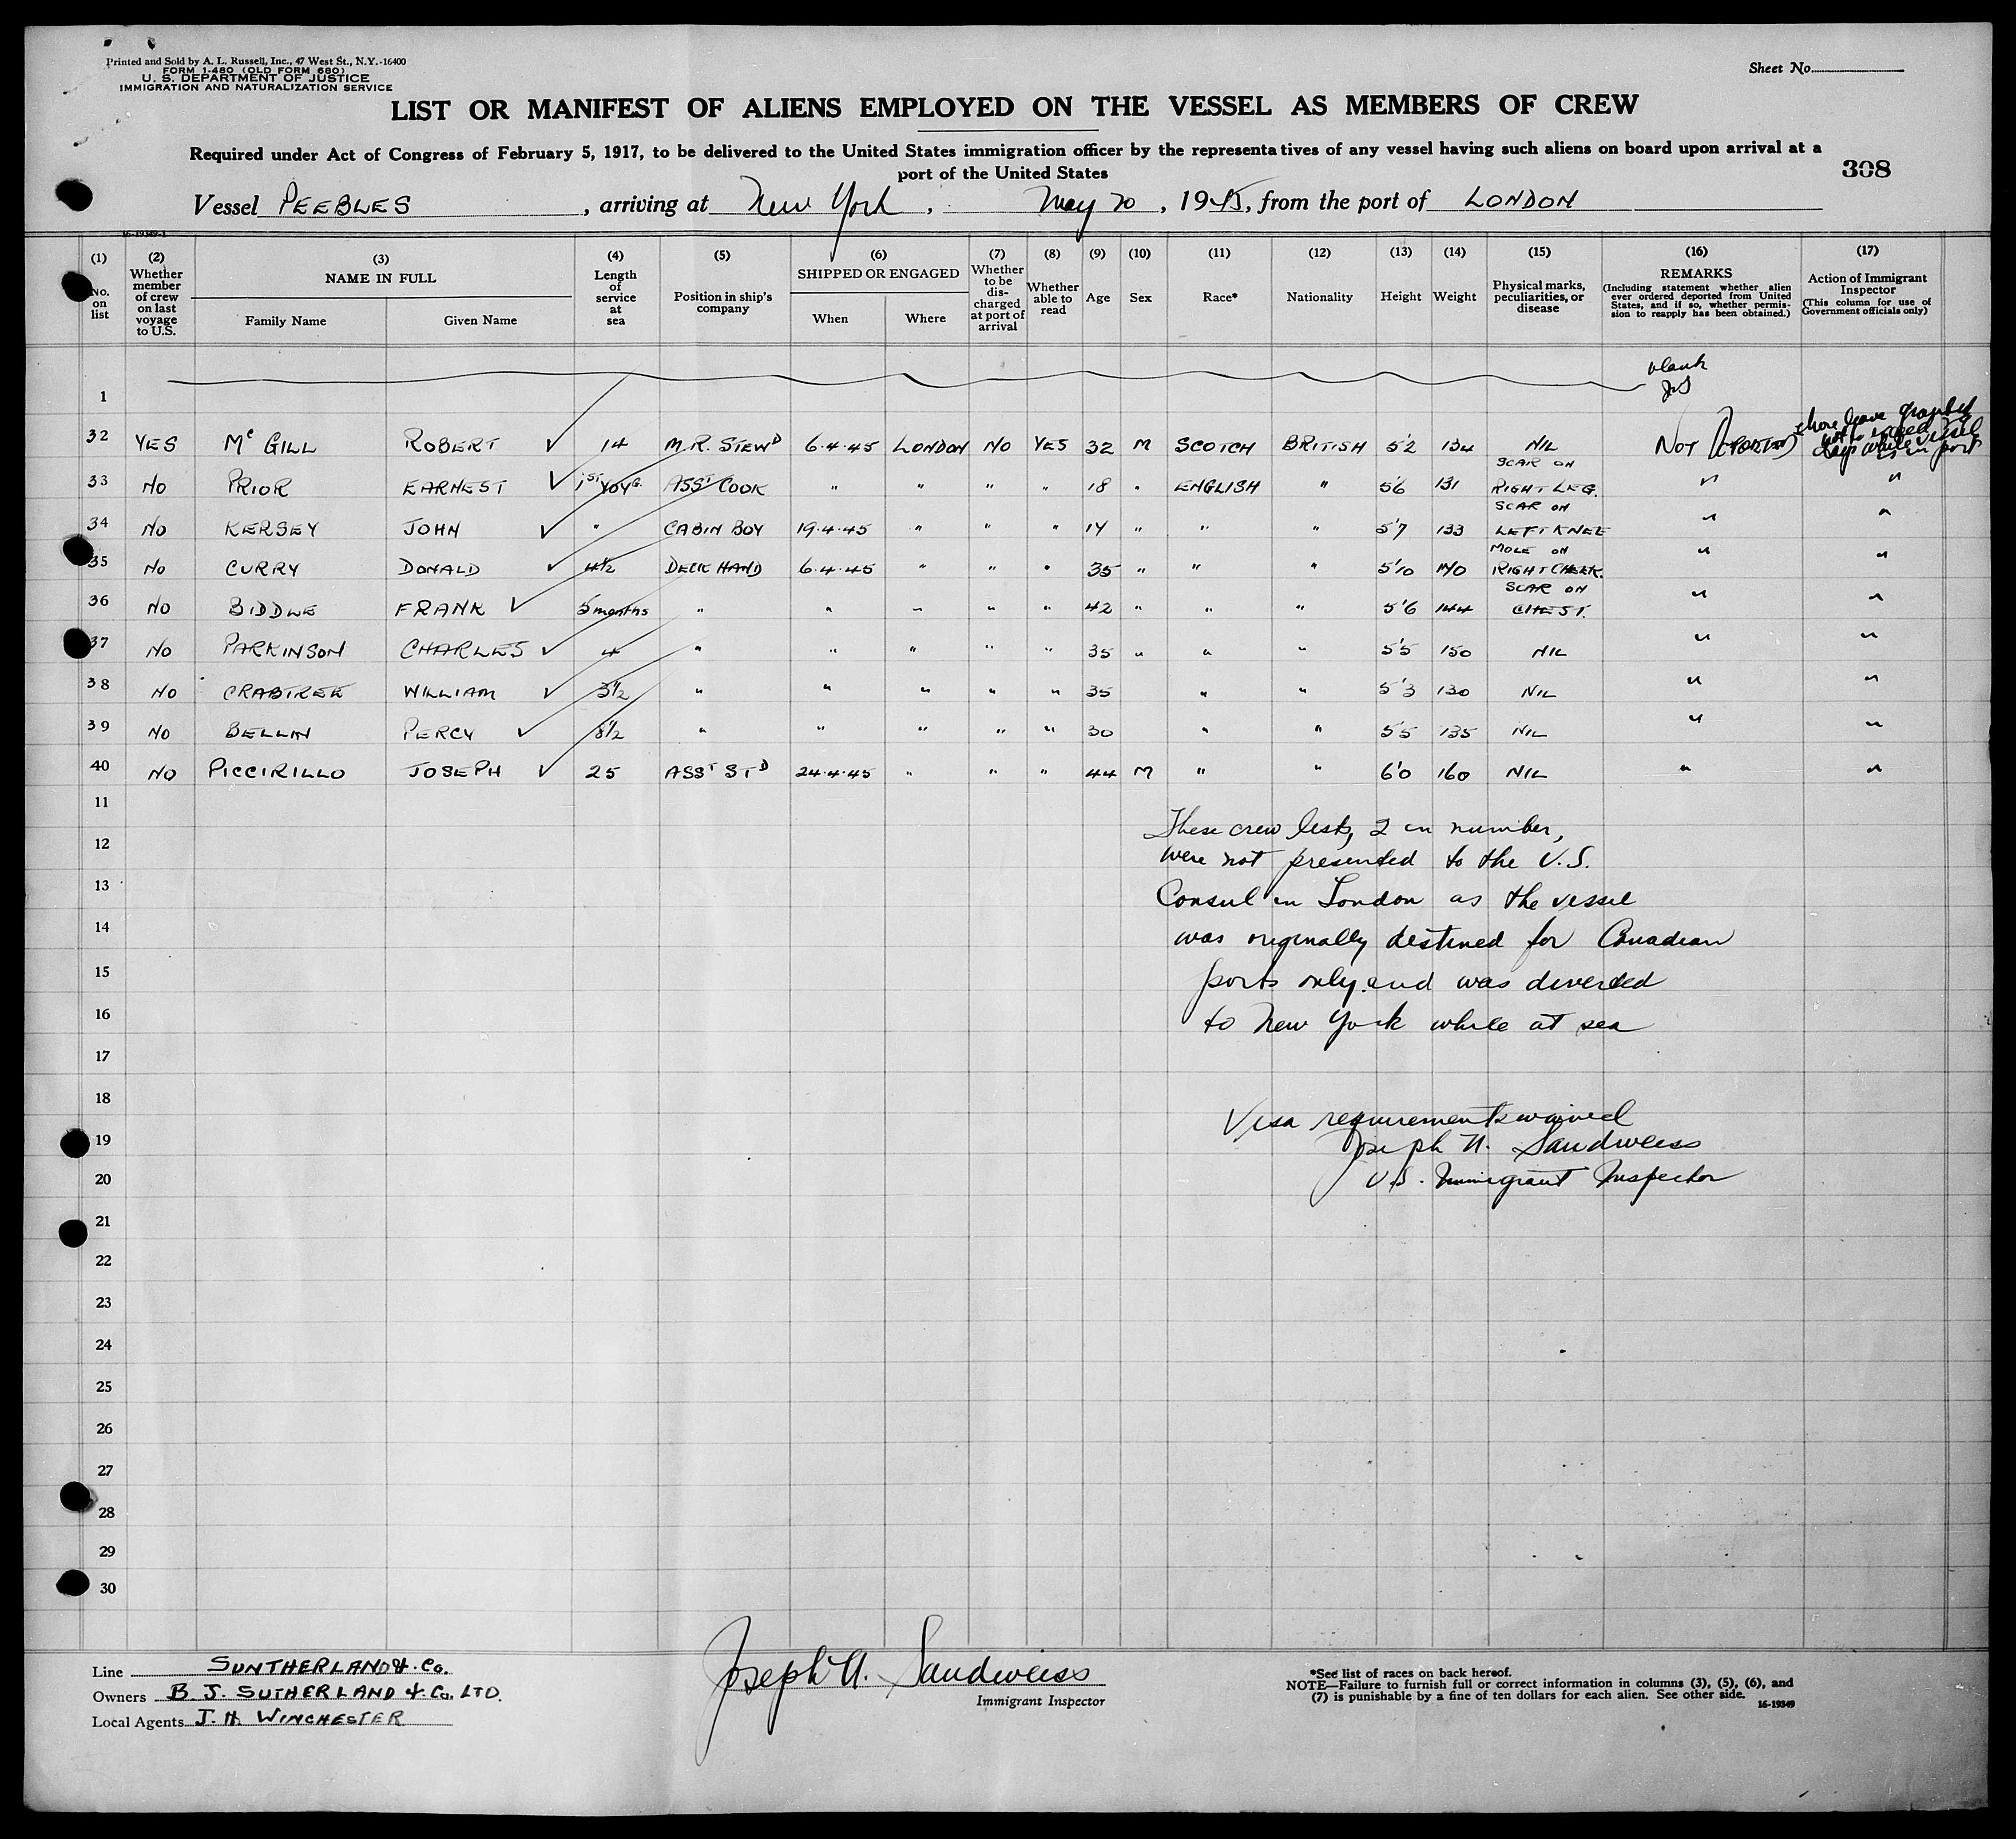 Printed and Sold by A. L. Russell, Inc., 47 West St., N.Y.-16400
FORM I-480 (OLD FORM 680)
U. S. DEPARTMENT OF JUSTICE
IMMIGRATION AND NATURALIZATION SERVICE
Sheet No.
LIST OR MANIFEST OF ALIENS EMPLOYED ON THE VESSEL AS MEMBERS OF CREW
Required under Act of Congress of February 5, 1917, to be delivered to the United States immigration officer by the representatives of any vessel having such aliens on board upon arrival at a
port of the United States
308
Vessel PEEBLES, arriving at New York, May 20, 1945, from the port of LONDON
16-19349-1
(1) No. on list
(2) Whether member of crew on last voyage to U.S.
(3) NAME IN FULL Family Name Given Name
(4) Length of service at sea
(5) Position in ship's company
(6) SHIPPED OR ENGAGED When Where
(7) Whether to be discharged at port of arrival
(8) Whether able to read
(9) Age
(10) Sex
(11) Race*
(12) Nationality
(13) Height
(14) Weight
(15) Physical marks, peculiarities, or disease
(16) REMARKS (Including statement whether alien ever ordered deported from United States, and if so, whether permission to reapply has been obtained.)
(17) Action of Immigrant Inspector (This column for use of Government officials only)
1 blank JNS
32 YES Mc GILL ROBERT ✓ 14 M.R. STEWD 6.4.45 LONDON NO YES 32 M SCOTCH BRITISH 5'2 134 NIL NOT shore leave granted not to exceed days while vessel is in port
33 NO PRIOR EARNEST ✓ 1ST VOYG. ASST COOK " " " " 18 " ENGLISH " 5'6 131 SCAR ON RIGHT LEG. " "
34 NO KERSEY JOHN ✓ " CABIN BOY 19.4.45 " " " 14 " " " 5'7 133 SCAR ON LEFT KNEE " "
35 NO CURRY DONALD ✓ 4½ DECK HAND 6.4.45 " " " 35 " " " 5'10 170 MOLE ON RIGHT CHEEK. " "
36 NO BIDDLE FRANK ✓ 5 months " " " " " 42 " " " 5'6 144 SCAR ON CHEST. " "
37 NO PARKINSON CHARLES ✓ 4 " " " " " 35 " " " 5'5 150 NIL " "
38 NO CRABTREE WILLIAM ✓ 3½ " " " " " 35 " " 5'3 130 NIL " "
39 NO BELLIN PERCY ✓ 8½ " " " " " 30 " " 5'5 135 NIL " "
40 NO PICCIRILLO JOSEPH ✓ 25 ASST STD 24.4.45 " " " 44 M " " 6'0 160 NIL " "
11
These crew lists, 2 in number,
12
were not presented to the U.S.
13
Consul in London as the vessel
14
was originally destined for Canadian
15
ports only and was diverted
16
to New York while at sea
17
18
Visa requirements waived
19
Joseph N. Sandweiss
20
U.S. Immigrant Inspector
21
22
23
24
25
26
27
28
29
30
Line SUNTHERLAND & Co.
Owners B. J. SUTHERLAND & Co. LTD.
Local Agents J. H. WINCHESTER
Joseph N. Sandweiss
Immigrant Inspector
*See list of races on back hereof.
NOTE—Failure to furnish full or correct information in columns (3), (5), (6), and
(7) is punishable by a fine of ten dollars for each alien. See other side.
16-19349